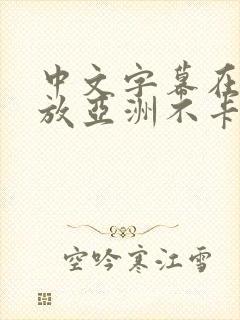 中文字幕在
放亞洲不卡
空吟寒江雪